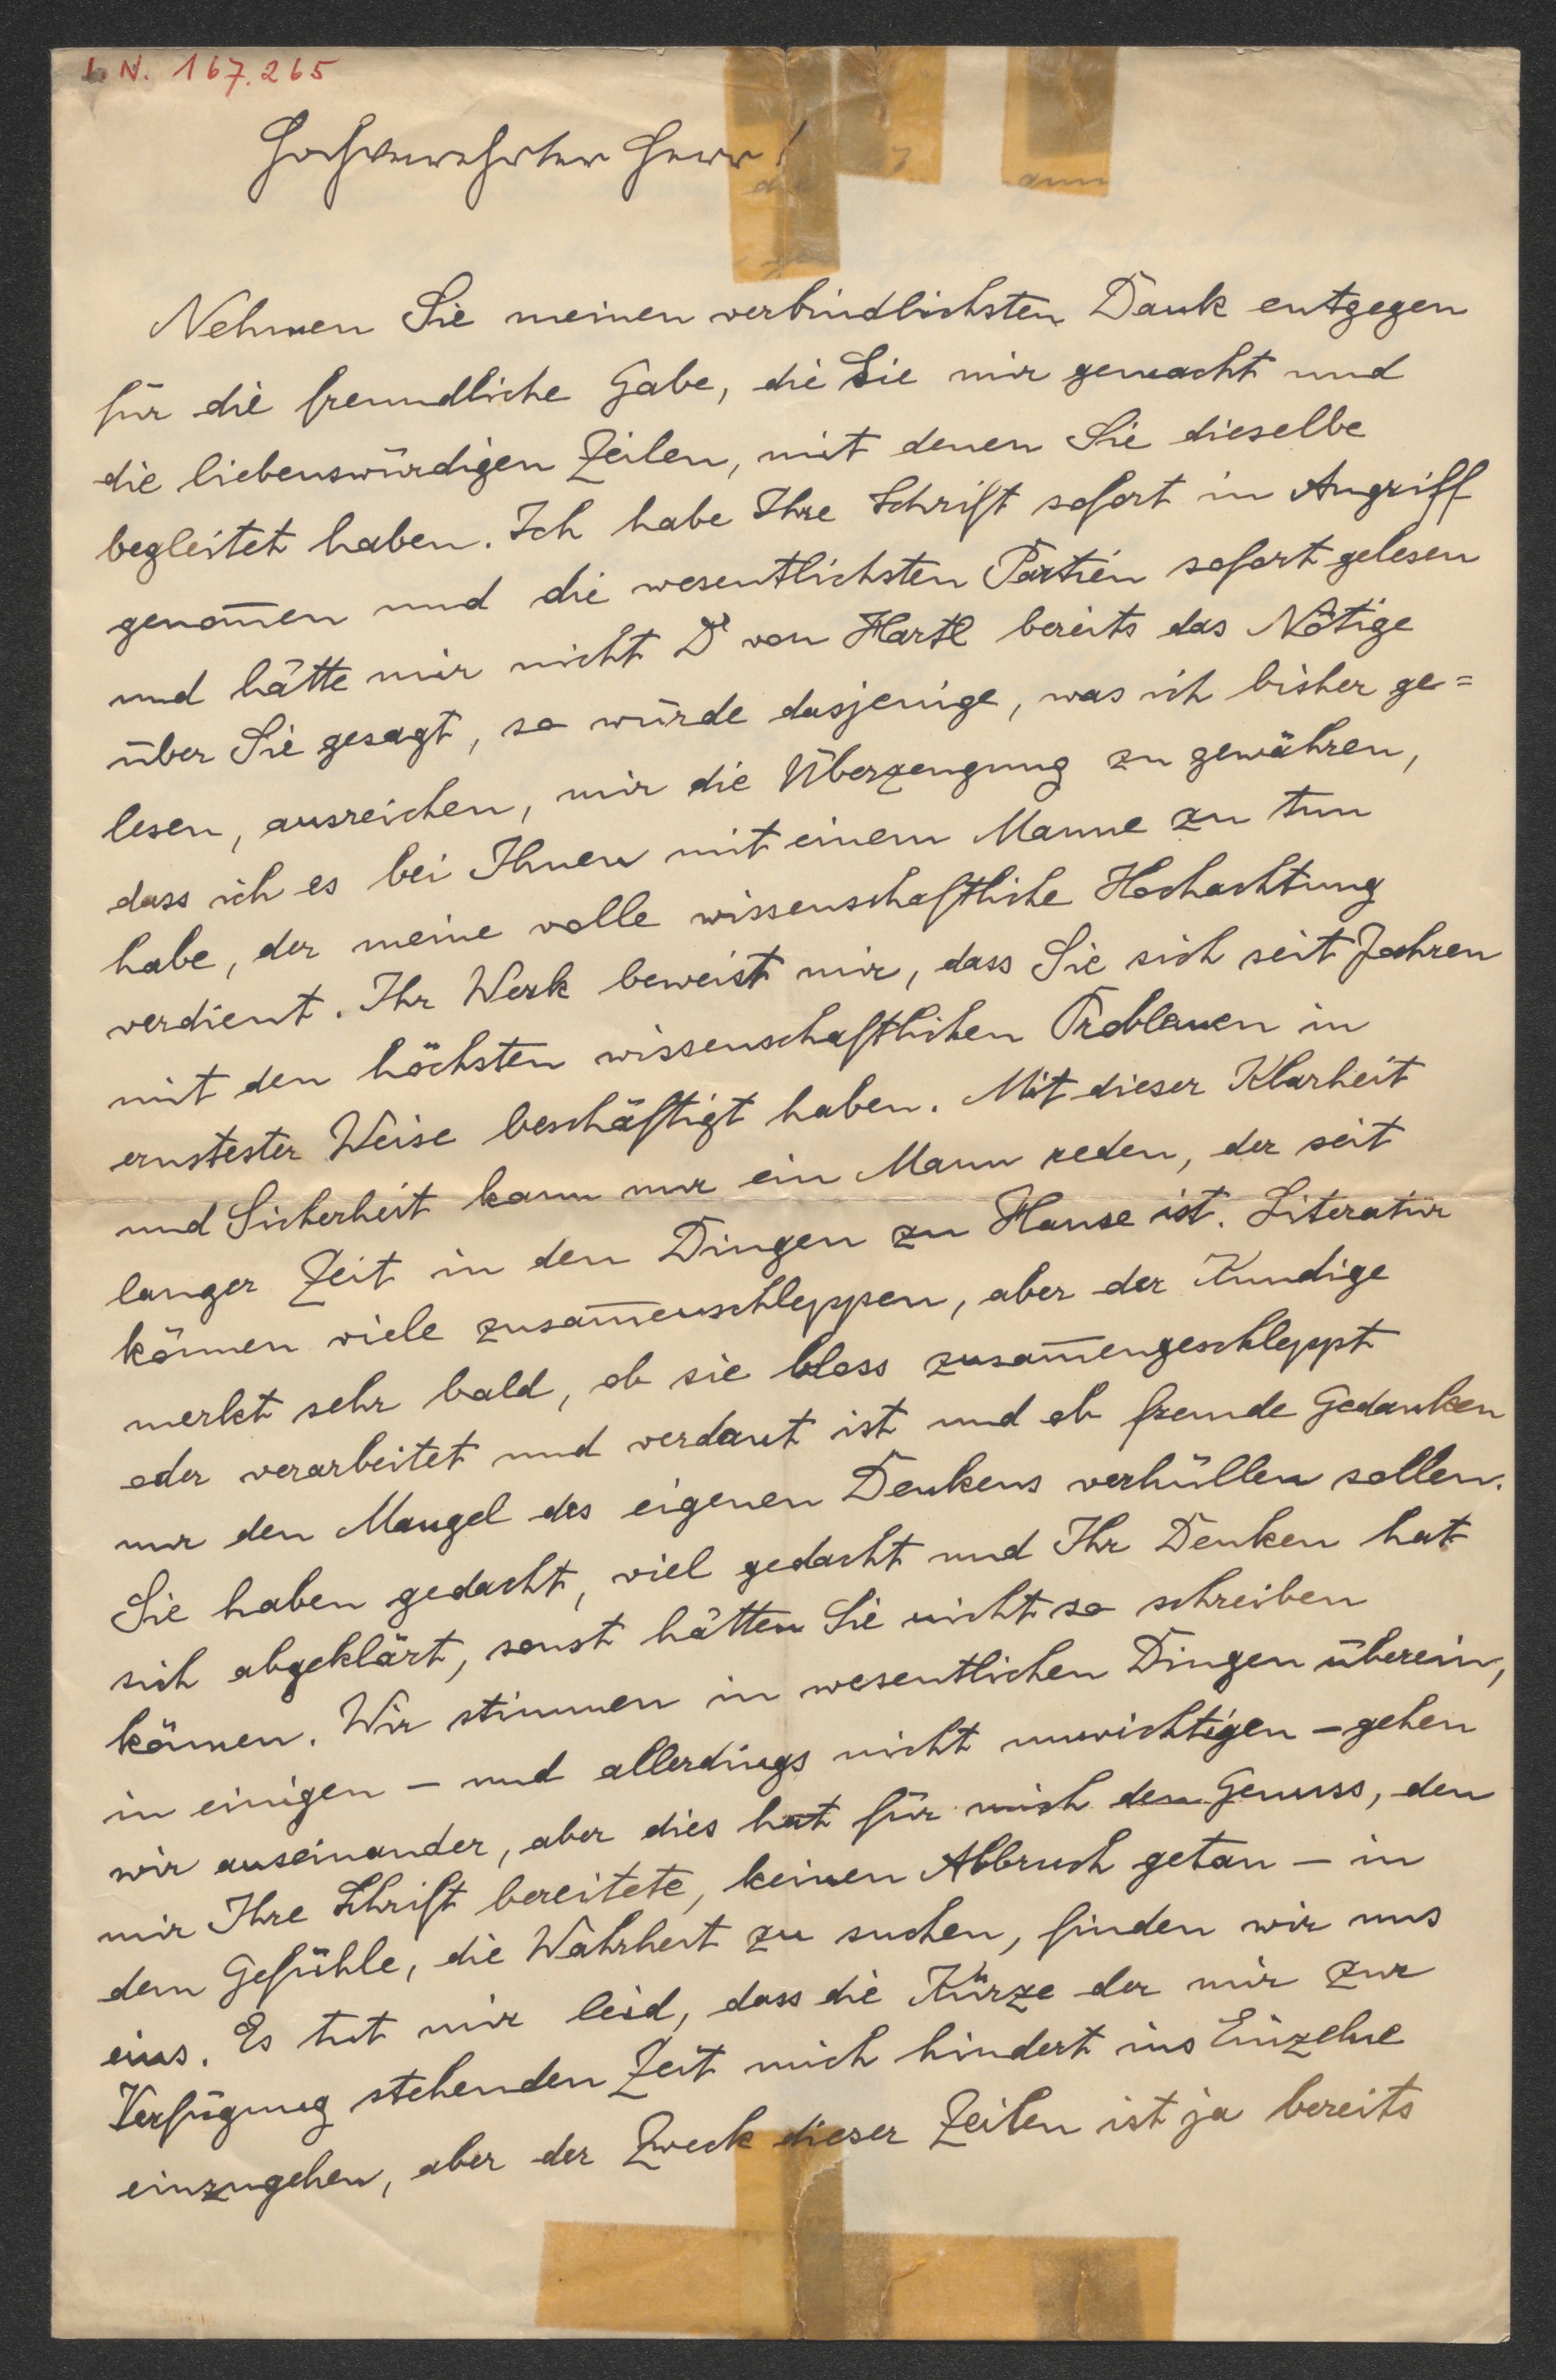 I. N. 167.265
Hochverehrter Herr!
Nehmen Sie meinen verbindlichsten Dank entgegen
für die freundliche Gabe, die Sie mir gemacht und
die liebenswürdigen Zeilen, mit denen Sie dieselbe
begleitet haben. Ich habe Ihre Schrift sofort in Angriff
genom̅en und die wesentlichsten Partien sofort gelesen
und hätte mir nicht Dr von Hartl bereits das Nötige
über Sie gesagt, so würde dasjenige, was ich bisher ge=
lesen, ausreichen, mir die Überzeugung zu gewähren,
dass ich es bei Ihnen mit einem Manne zu tun
habe, der meine volle wissenschaftliche Hochachtung
verdient. Ihr Werk beweist mir, dass Sie sich seit Jahren
mit den höchsten wissenschaftlichen Problemen in
ernstester Weise beschäftigt haben. Mit dieser Klarheit
und Sicherheit kann nur ein Mann reden, der seit
langer Zeit in den Dingen zu Hause ist. Literatur
können viele zusam̅enschleppen, aber der Kundige
merkt sehr bald, ob sie bloss zusam̅engeschleppt
oder verarbeitet und verdaut ist und ob fremde Gedanken
nur den Mangel des eigenen Denkens verhüllen sollen.
Sie haben gedacht, viel gedacht und Ihr Denken hat
sich abgeklärt, sonst hätten Sie nicht so schreiben
können. Wir stimmen in wesentlichen Dingen überein,
in einigen – und allerdings nicht unwichtigen – gehen
wir auseinander, aber dies hat für mich den Genuss, den
mir Ihre Schrift bereitete, keinen Abbruch getan – in
dem Gefühle, die Wahrheit zu suchen, finden wir uns
eins. Es tut mir leid, dass die Kürze der mir zur
Verfügung stehenden Zeit mich hindert ins Einzelne
einzugehen, aber der Zweck dieser Zeilen ist ja bereits